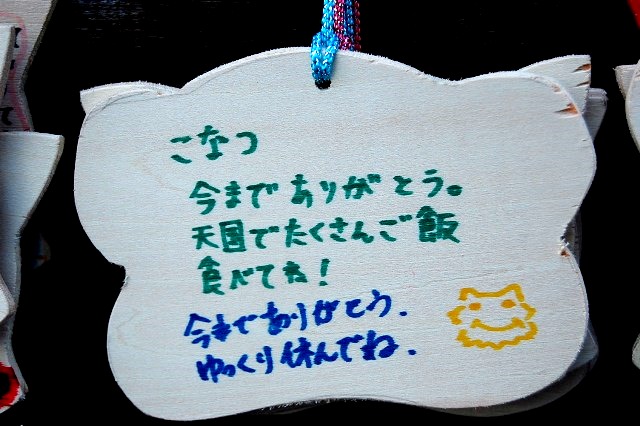 こなつ
今までありがとう。
天国でたくさんご飯
食べてね!
今までありがとう.
ゆっくり休んでね.